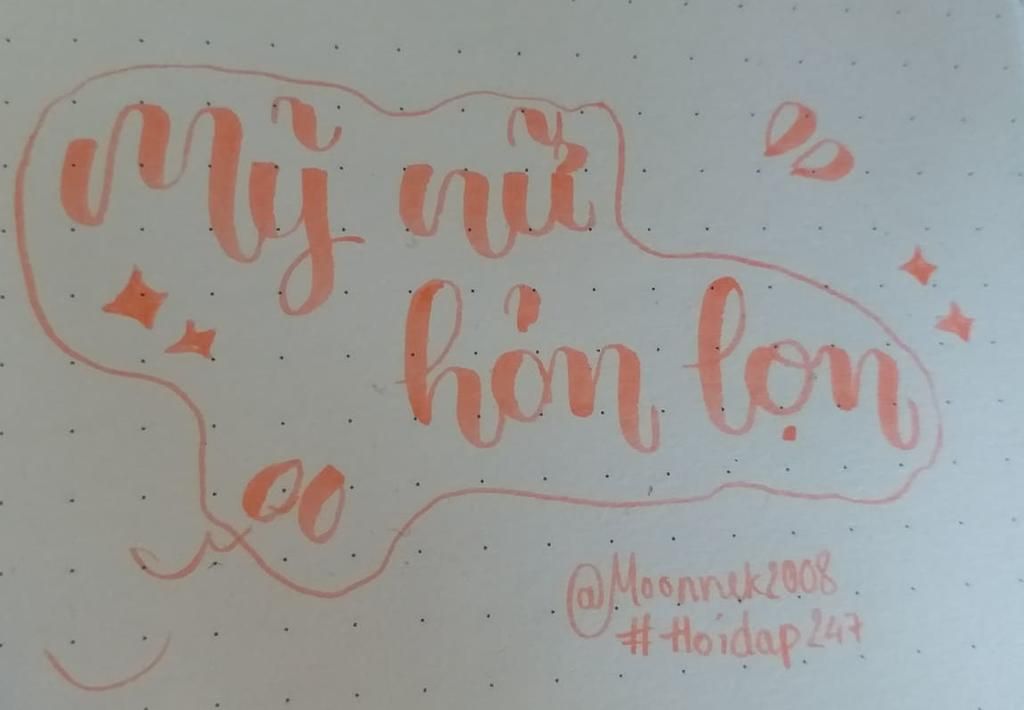 Mỹ nữ
hỏn lọn
@Moonnek2008
#Hoidap247